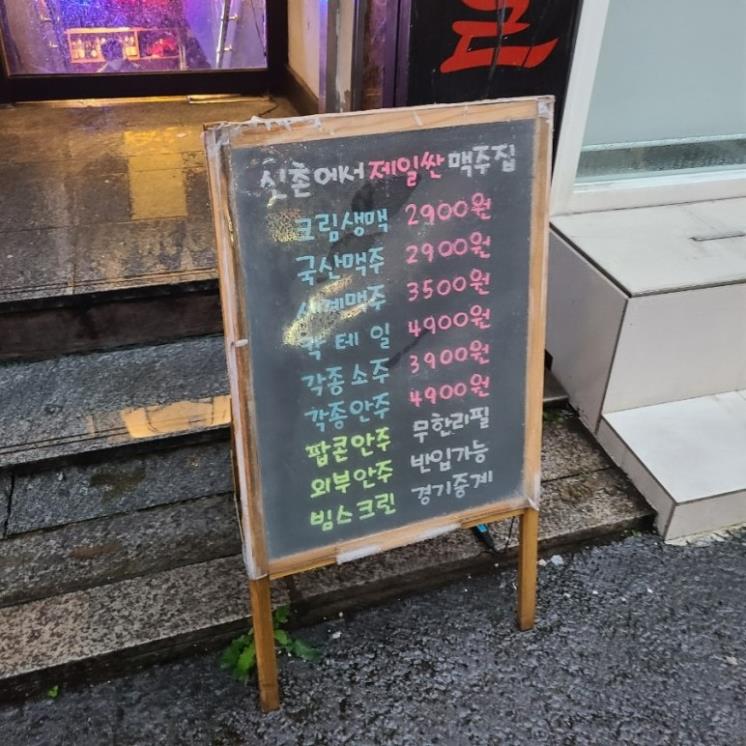 신촌에서 제일싼 맥주집
크림생맥 2900원
국산맥주 2900원
세계맥주 3500원
칵테일 4900원
각종소주 3900원
각종안주 4900원
팝콘안주 무한리필
외부안주 반입가능
빔스크린 경기중계